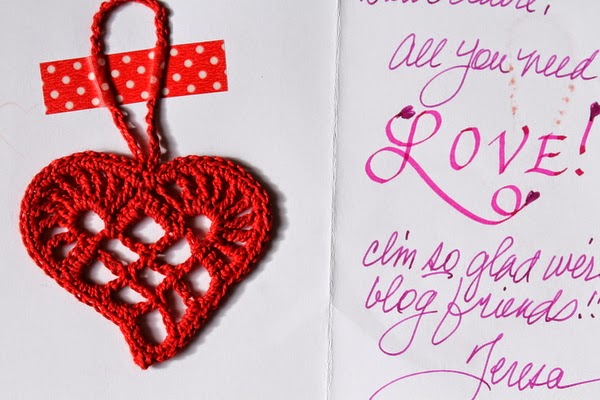 All you need
LOVE!
I'm so glad we're
blog friends!!
Teresa